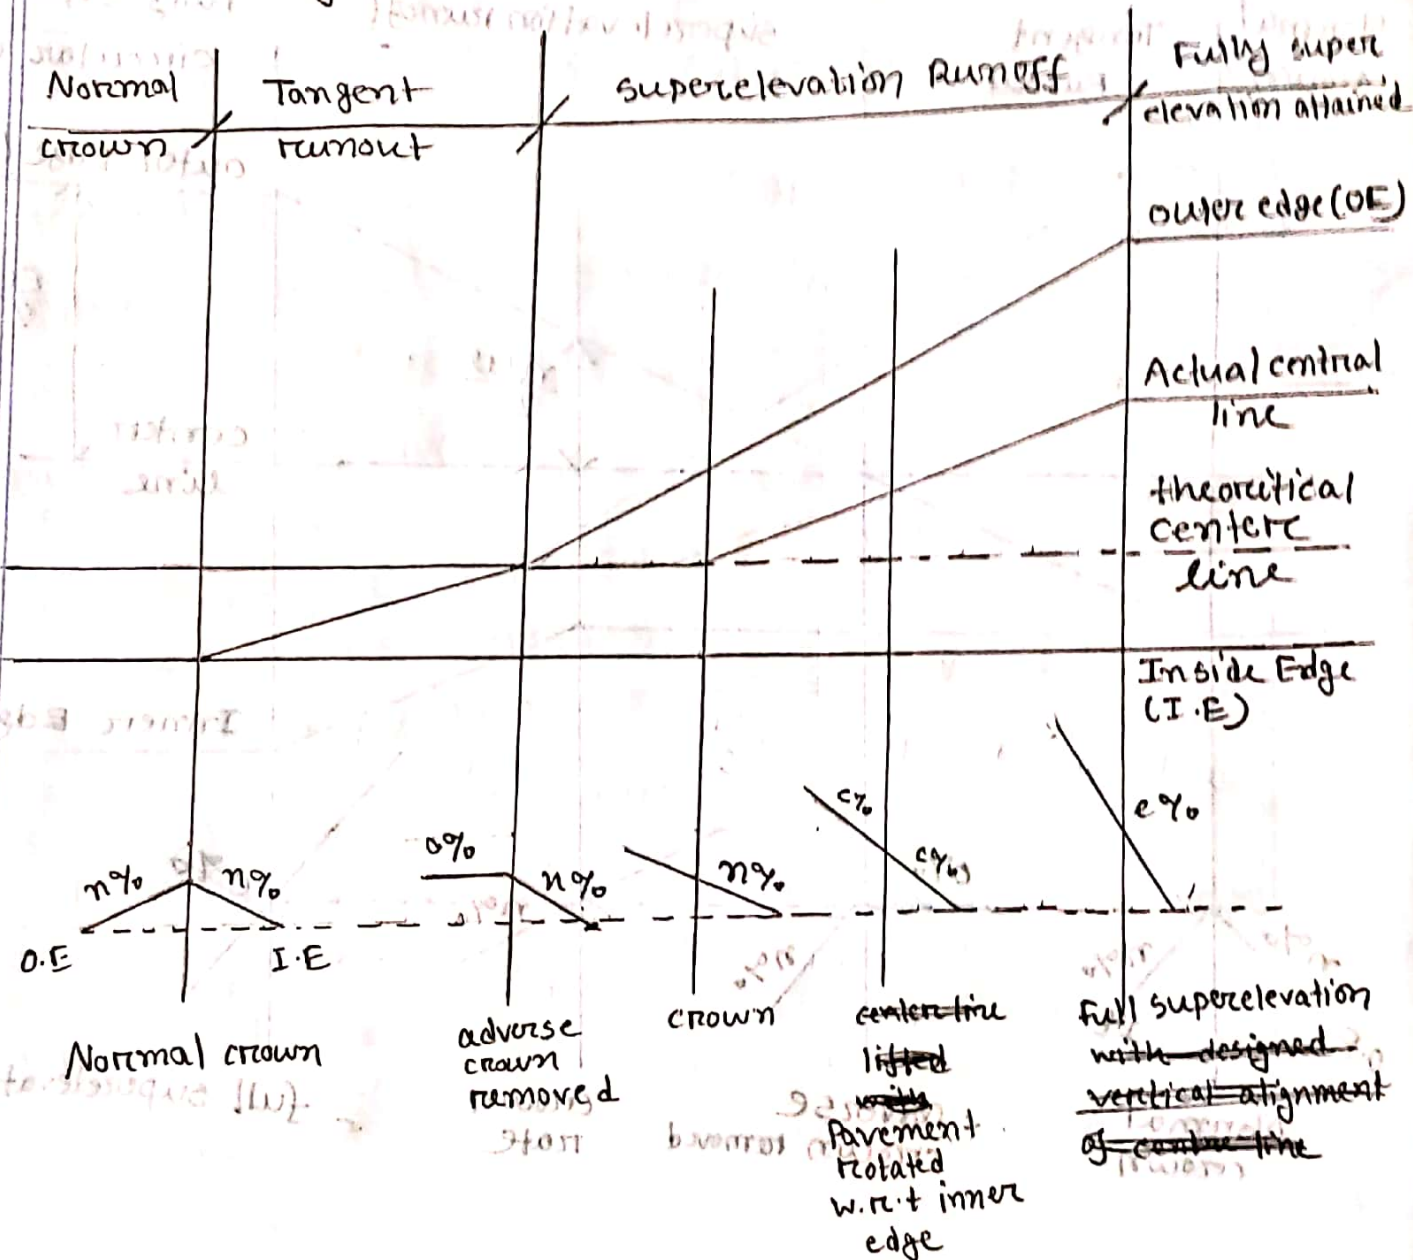 Normal
crown
Tangent
runout
superelevation Runoff
Fully super
elevation attained
outer edge (OE)
Actual central
line
theoritical
centere
line
Inside Edge
(I.E)
n%
n%
O.E
I.E
0%
n%
n%
c%
e%
Normal crown
adverse
crown
removed
crown
center line
lifted
Pavement
rotated
w.r.t inner
edge
full superelevation
with designed
vertical alignment
of centre line